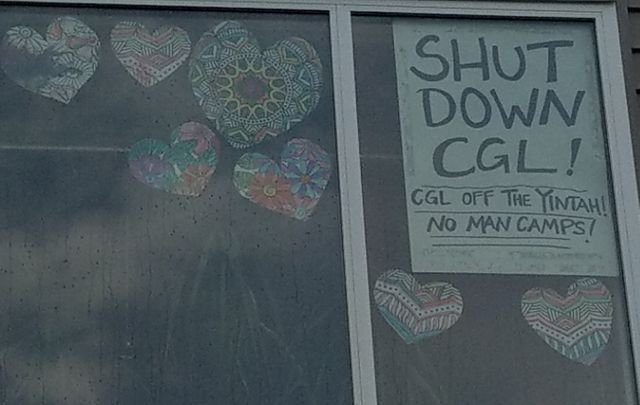 SHUT
DOWN
CGL!
CGL OFF THE YINTAH!
NO MAN CAMPS!